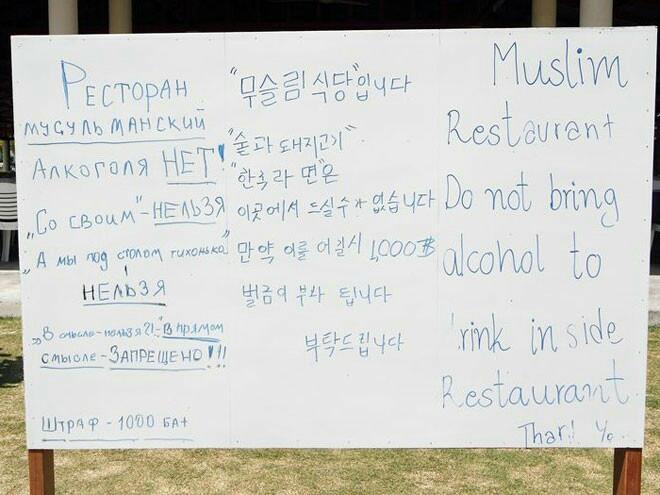 Ресторан
мусульманский
Алкоголя НЕТ!
„Со своим"-НЕЛЬЗЯ
„А мы под столом тихонько"
НЕЛЬЗЯ
„В смысле-нельзя?!-"В прямом
смысле-ЗАПРЕЩЕНО!!!
Штраф-1000 бат
"무슬림 식당"입니다
"술과 돼지고기"
이곳에서 드실수가 없습니다
만약 이를 어길시 1,000฿
벌금이 부과 됩니다
부탁드립니다
Muslim
Restaurant
Do not bring
alcohol to
rink inside
Restaurant